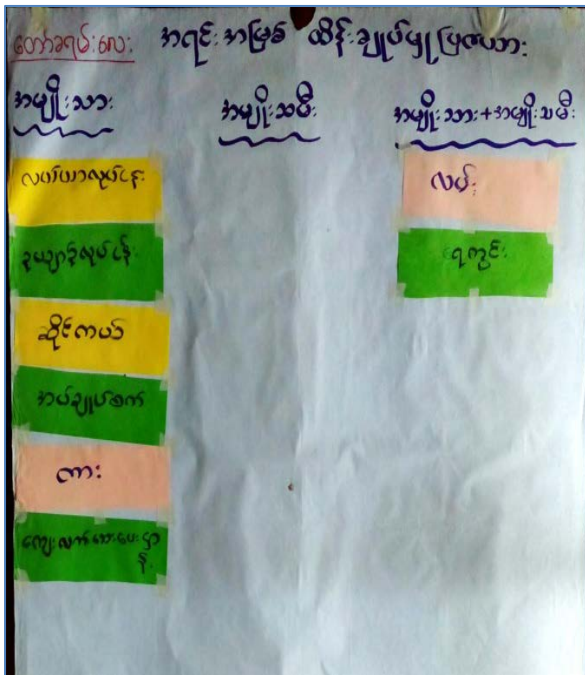 တော်ခရမ်းလေး အရင်းအမြစ် ထိန်းချုပ်မှု ပြဇယား
အမျိုးသား အမျိုးသမီး အမျိုးသား+အမျိုးသမီး
လယ်ယာလုပ်ငန်း လမ်း
ဥယျာဉ်လုပ်ငန်း ရေတွင်း
ဆိုင်ကယ်
အပ်ချုပ်စက်
ကား
ကျေးလက်ဆေးပေးဌာန